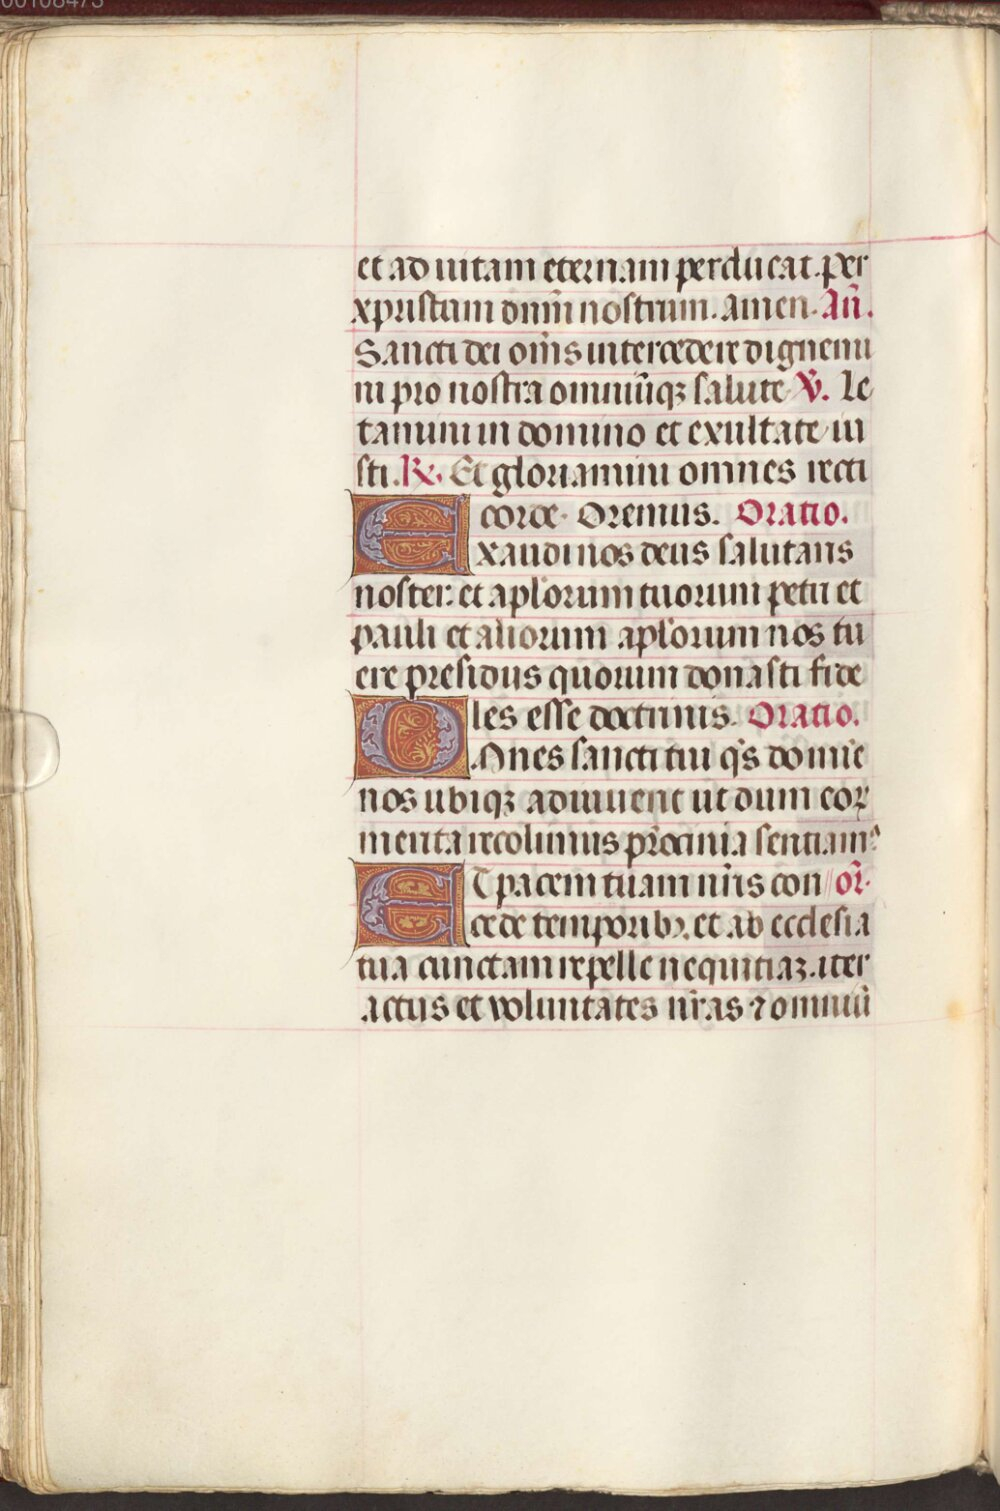 00108473
et ad uitam eternam perducat. per
xpristum dnm̄ nostrum. amen. Añ.
Sancti dei om̄s intercedere dignemi
ni pro nostra omniūqꝫ salute ℣. Le
tamini in domino et exultate iu
sti. ℟. Et gloriamini omnes recti
corde. Oremus. Oratio.
Exaudi nos deus salutaris
noster: et apl̓orum tuorum petri et
pauli et aliorum apl̓orum nos tu
ere presidiis quorum donasti fide
les esse doctrinis. Oratio.
Omnes sancti tui q̄s domīe
nos ubiqꝫ adiuuent ut dum eoꝝ
merita recolimus pr̄ocinia sentiamꝰ
Et pacem tuam nr̄is con or̄.
cede temporibꝫ. et ab ecclesia
tua cunctam repelle nequitiaꝫ. iter
actus et voluntates nr̄as ⁊ omniū